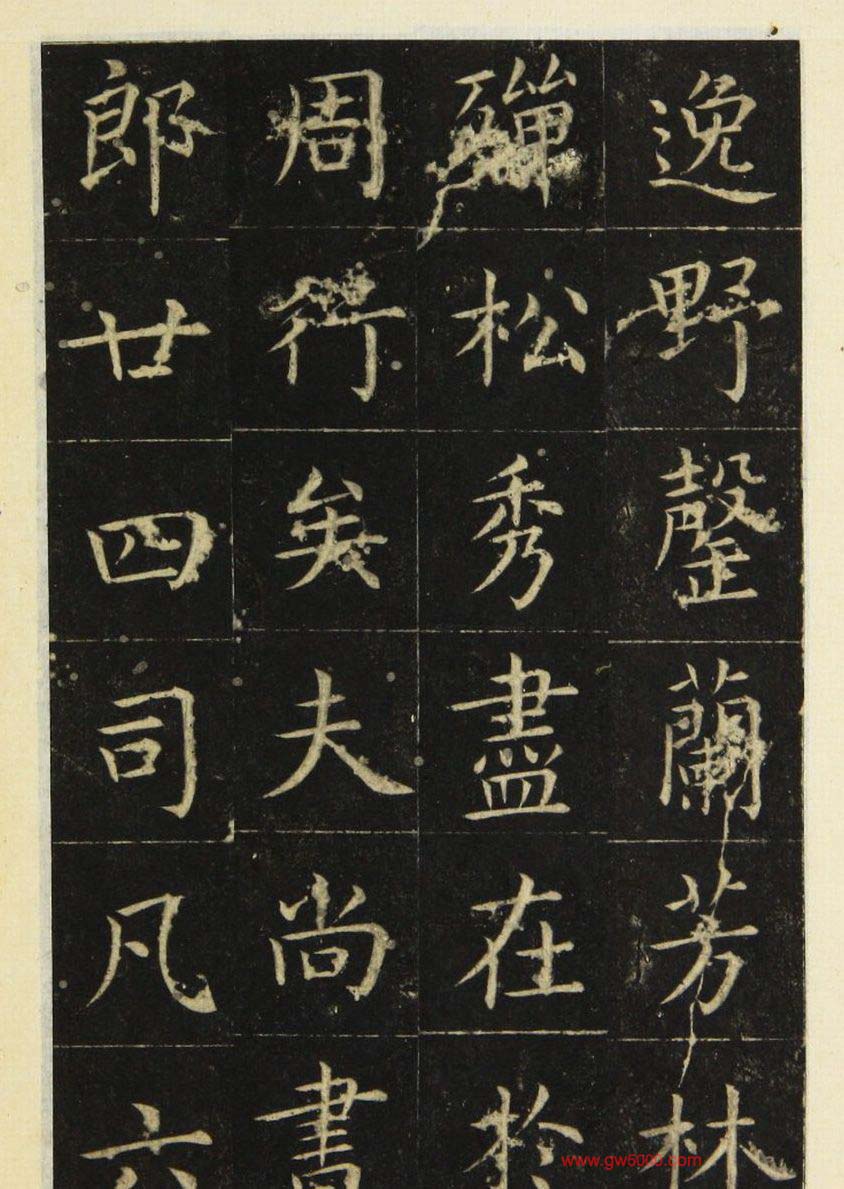 逸野罄蘭芳林
殫松秀盡在於
周行矣夫尚書
郎廿四司凡六
www.gw5000.com